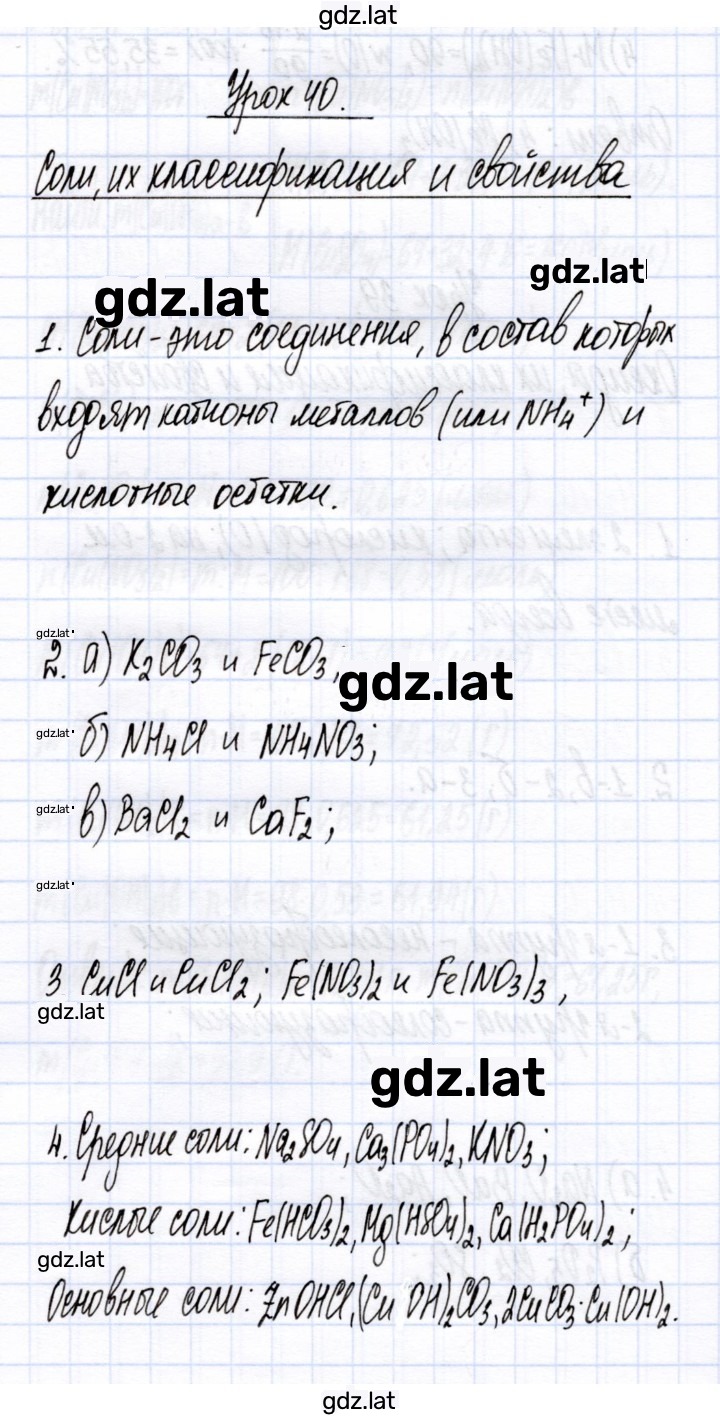 gdz.lat
Урок 40.
Соли, их классификация и свойства
gdz.lat
gdz.lat
1. Соли - это соединения, в состав которых
входят катионы металлов (или NH₄⁺) и
кислотные остатки.
gdz.lat
2. а) K₂CO₃ и FeCO₃;
gdz.lat
gdz.lat
б) NH₄Cl и NH₄NO₃;
gdz.lat
в) BaCl₂ и CaF₂;
gdz.lat
3 CuCl и CuCl₂; Fe(NO₃)₂ и Fe(NO₃)₃,
gdz.lat
gdz.lat
4. Средние соли: Na₂SO₄, Ca₃(PO₄)₂, KNO₃;
Кислые соли: Fe(HCO₃)₂, Mg(HSO₄)₂, Ca(H₂PO₄)₂;
gdz.lat
Основные соли: ZnOHCl, (Cu OH)₂CO₃, 2CuCO₃·Cu(OH)₂.
gdz.lat